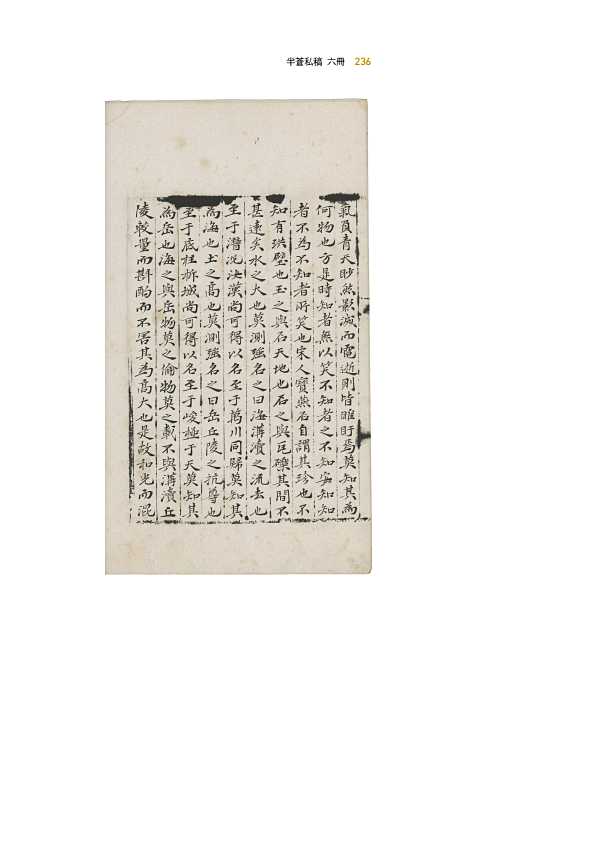 半蒼私稿 六冊 236
氣負青天眇然影滅而電逝則皆睢盱焉莫知其為
何物也方是時知者無以笑不知者之不知安知知
者不為不知者所笑也宋人寶燕石自謂其珍也不
知有珙璧也玉之與石天地也石之與瓦礫其間不
甚遠矣水之大也莫測強名之曰海溝瀆之流去也
至于潛沉決漢尚可得以名至于萬川同歸莫知其
為海也土之高也莫測強名之曰岳丘陵之抗尊也
至于底柱析城尚可得以名至于峻極于天莫知其
為岳也海之與岳物莫之倫物莫之載不與溝瀆丘
陵較量而斟酌而不害其為高大也是故和光而混